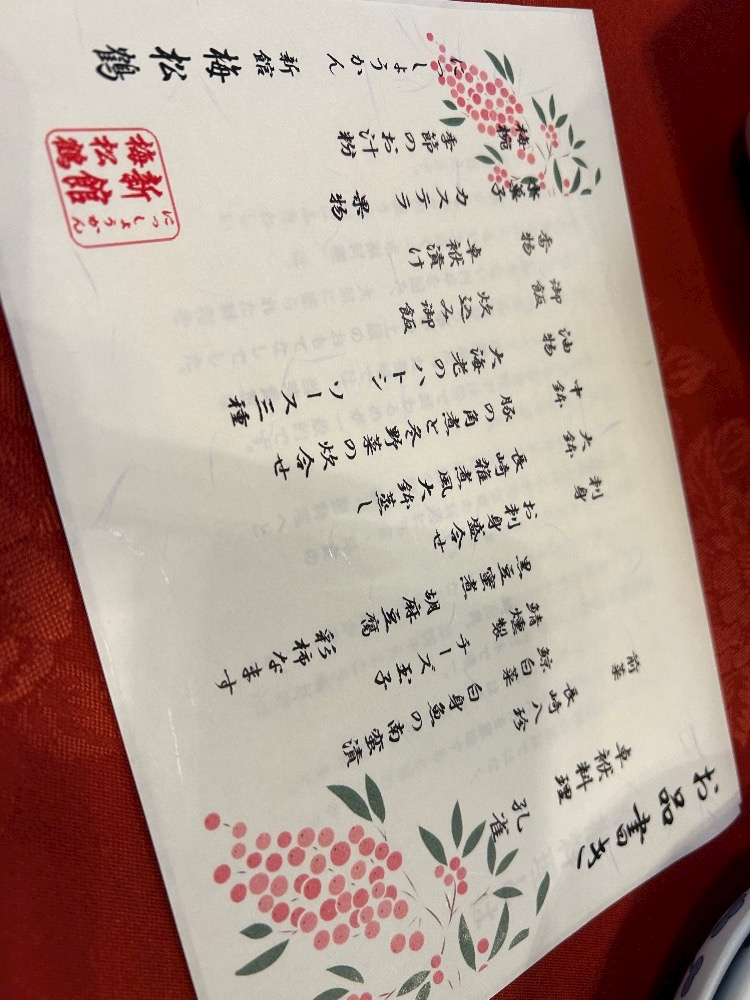 お品書き
卓袱料理 孔雀
前菜
長崎八珍
白身魚の南蛮漬
鯨白菜
チーズ玉子
彩柿なます
鯖燻製
胡麻豆腐
黒豆蜜煮
刺身
お刺身盛合せ
大鉢
長崎雑煮風大鉢蒸し
中鉢
豚の角煮と冬野菜の炊合せ
油物
大海老のハトシ ソース三種
御飯
炊込み御飯
香物
卓袱漬け
菓子
カステラ 果物
梅椀
季節のお汁粉
にっしょうかん
新館 梅松鶴
新館
梅松鶴
にっしょうかん